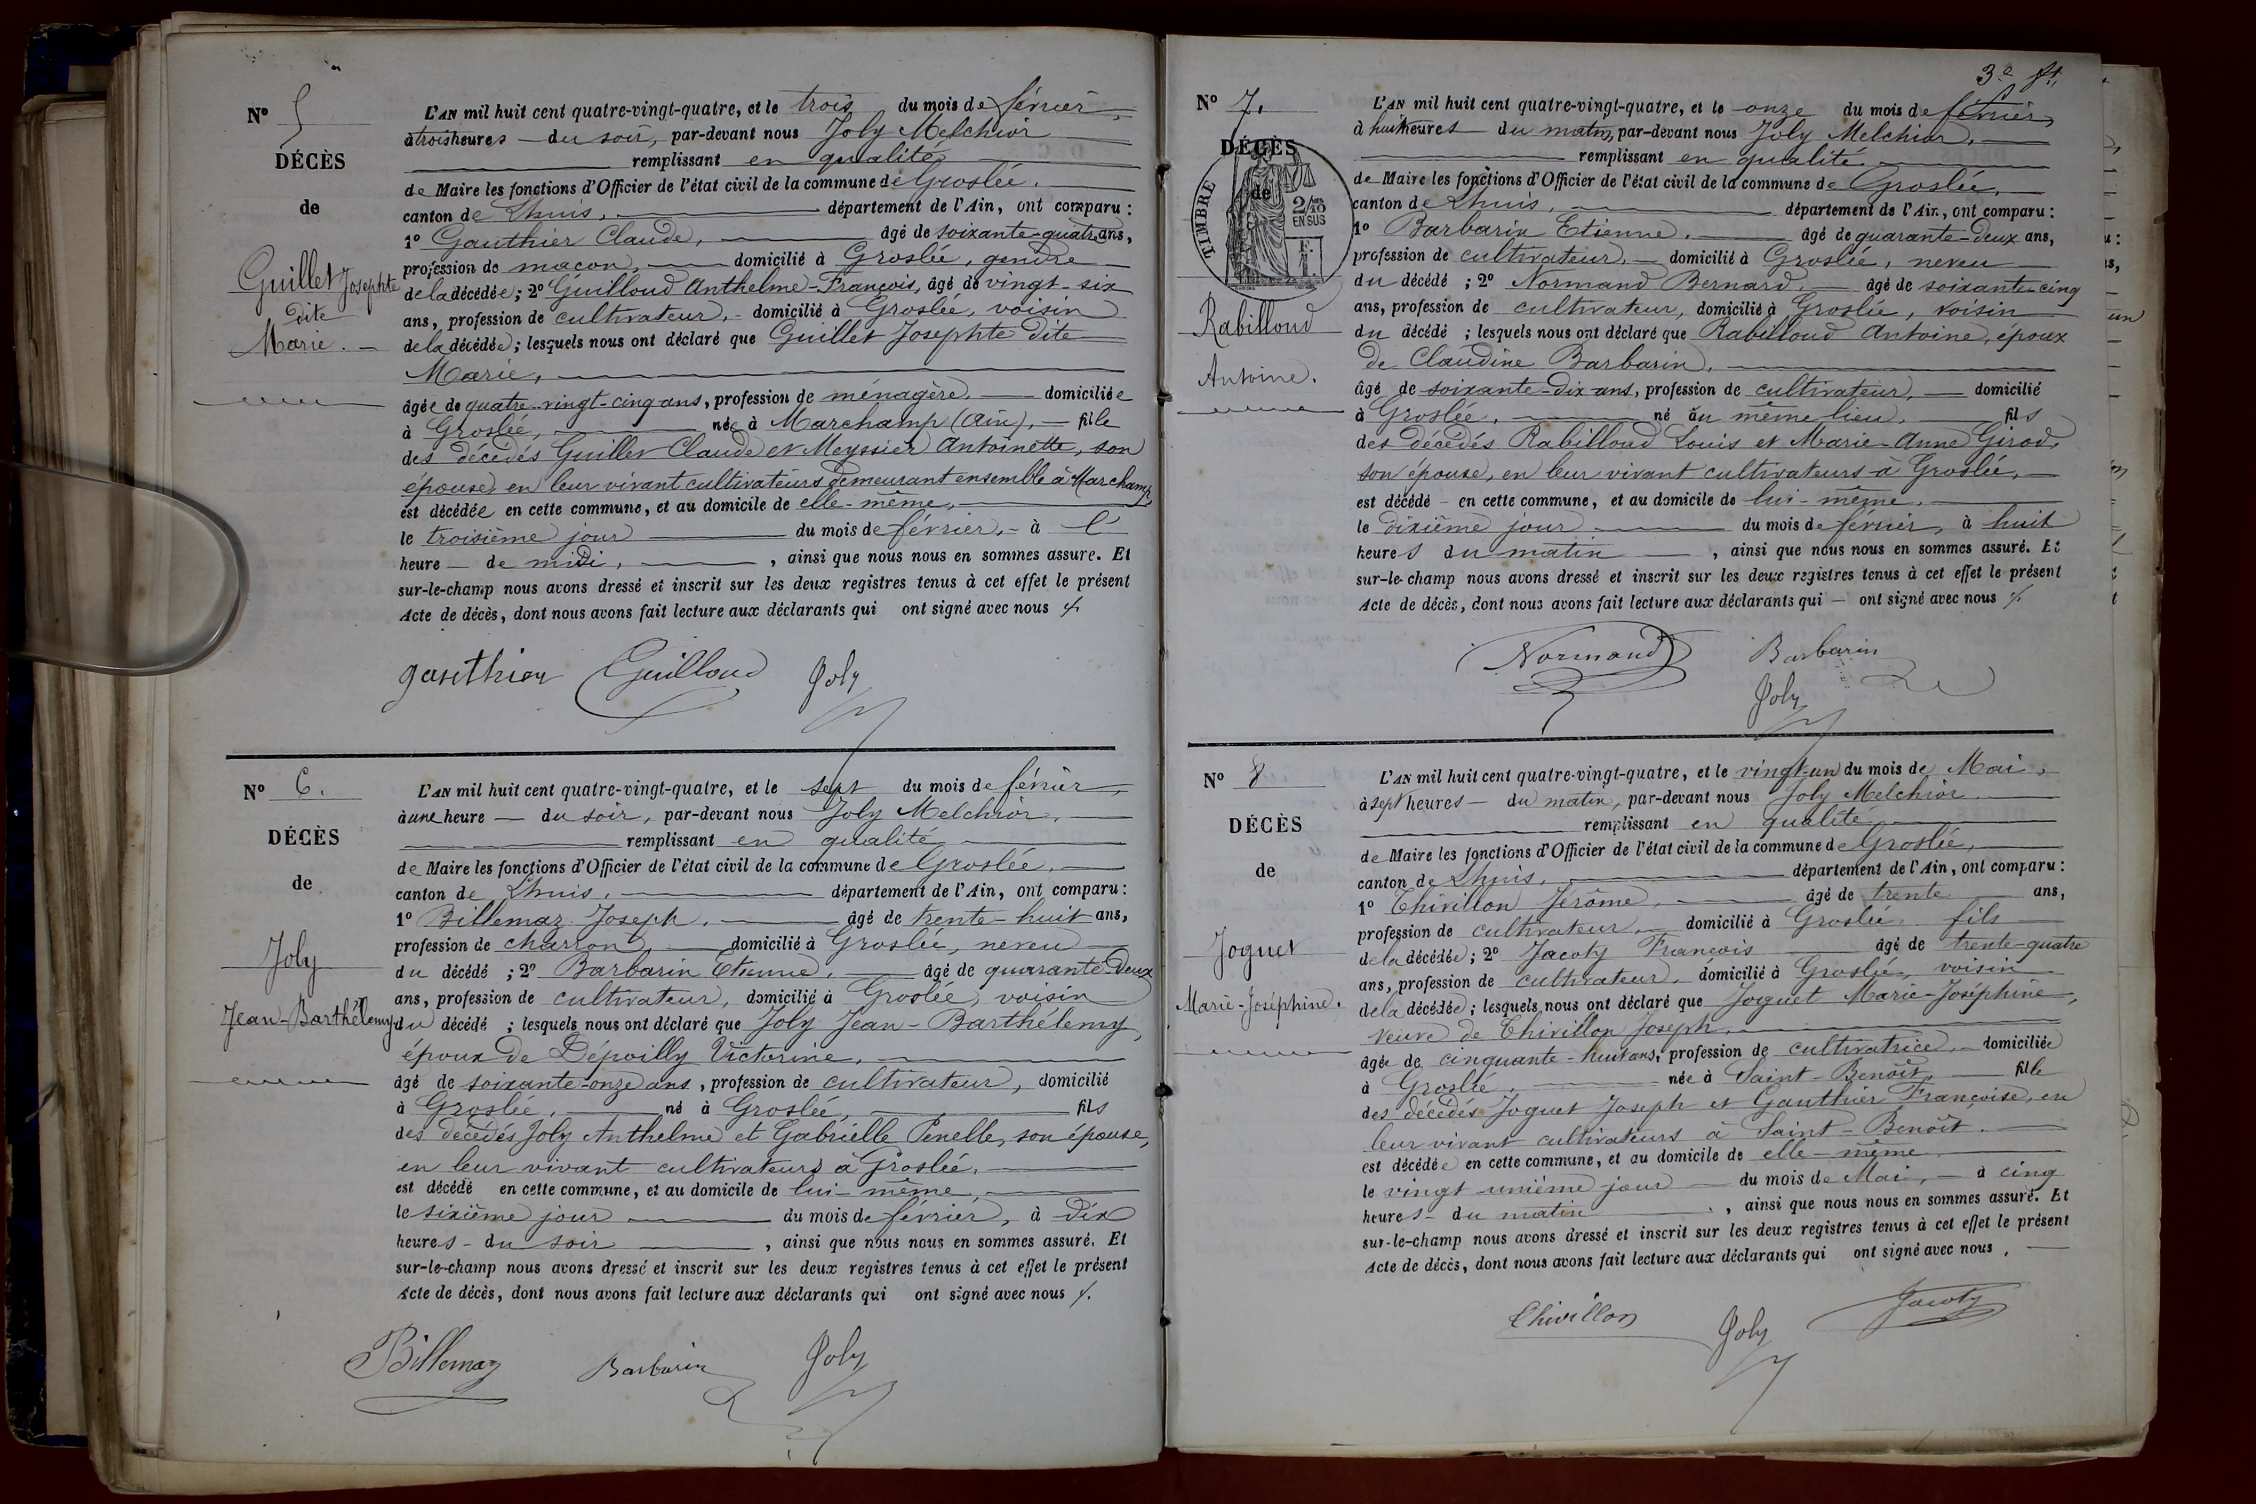 Nº 5
DÉCÈS
de
Guillet Josephte
dite
Marie.
L'AN mil huit cent quatre-vingt-quatre, et le trois du mois de février,
à trois heures du soir, par-devant nous Joly Melchior
remplissant en qualité
de Maire les fonctions d'Officier de l'état civil de la commune de Groslée.
canton de Lhuis, département de l'Ain, ont comparu :
1º Gauthier Claude, âgé de soixante-quatre ans,
profession de maçon, domicilié à Groslée, gendre
de la décédée ; 2º Guilloud Anthelme-François, âgé de vingt-six
ans, profession de cultivateur, domicilié à Groslée, voisin
de la décédée ; lesquels nous ont déclaré que Guillet Josephte dite
Marie,
âgée de quatre-vingt-cinq ans, profession de ménagère, domiciliée
à Groslée, née à Marchamp (Ain), fille
des décédés Guillet Claude et Meyssier Antoinette, son
épouse, en leur vivant cultivateurs demeurant ensemble à Marchamp
est décédée en cette commune, et au domicile de elle-même,
le troisième jour du mois de février, à l'
heure de midi, ainsi que nous nous en sommes assuré. Et
sur-le-champ nous avons dressé et inscrit sur les deux registres tenus à cet effet le présent
Acte de décès, dont nous avons fait lecture aux déclarants qui ont signé avec nous
gauthier Guilloud Joly
Nº 6.
DÉCÈS
de
Joly
Jean-Barthélemy
L'AN mil huit cent quatre-vingt-quatre, et le sept du mois de février,
à une heure du soir, par-devant nous Joly Melchior,
remplissant en qualité
de Maire les fonctions d'Officier de l'état civil de la commune de Groslée,
canton de Lhuis, département de l'Ain, ont comparu :
1º Billemaz Joseph, âgé de trente-huit ans,
profession de charron, domicilié à Groslée, neveu
du décédé ; 2º Barbarin Etienne, âgé de quarante-deux
ans, profession de cultivateur, domicilié à Groslée, voisin
du décédé ; lesquels nous ont déclaré que Joly Jean-Barthélemy,
époux de Dépoilly Victorine,
âgé de soixante-onze ans, profession de cultivateur, domicilié
à Groslée, né à Groslée, fils
des décédés Joly Anthelme et Gabrielle Penelle, son épouse,
en leur vivant cultivateurs à Groslée,
est décédé en cette commune, et au domicile de lui-même,
le sixième jour du mois de février, à dix
heures du soir, ainsi que nous nous en sommes assuré. Et
sur-le-champ nous avons dressé et inscrit sur les deux registres tenus à cet effet le présent
Acte de décès, dont nous avons fait lecture aux déclarants qui ont signé avec nous
Billemaz Barbarin Joly
3e ft.
Nº 7.
DÉCÈS
de
TIMBRE
2/10 EN SUS
Rabilloud
Antoine.
L'AN mil huit cent quatre-vingt-quatre, et le onze du mois de février,
à huit heures du matin, par-devant nous Joly Melchior,
remplissant en qualité
de Maire les fonctions d'Officier de l'état civil de la commune de Groslée,
canton de Lhuis, département de l'Ain, ont comparu :
1º Barbarin Etienne, âgé de quarante-deux ans,
profession de cultivateur, domicilié à Groslée, neveu
du décédé ; 2º Normand Bernard, âgé de soixante-cinq
ans, profession de cultivateur, domicilié à Groslée, voisin
du décédé ; lesquels nous ont déclaré que Rabilloud Antoine, époux
de Claudine Barbarin,
âgé de soixante-dix ans, profession de cultivateur, domicilié
à Groslée, né au même lieu, fils
des décédés Rabilloud Louis et Marie-Anne Girod,
son épouse, en leur vivant cultivateurs à Groslée,
est décédé en cette commune, et au domicile de lui-même,
le dixième jour du mois de février, à huit
heures du matin, ainsi que nous nous en sommes assuré. Et
sur-le-champ nous avons dressé et inscrit sur les deux registres tenus à cet effet le présent
Acte de décès, dont nous avons fait lecture aux déclarants qui ont signé avec nous
Normand Barbarin
Joly
Nº 8
DÉCÈS
de
Joguet
Marie-Joséphine.
L'AN mil huit cent quatre-vingt-quatre, et le vingt-un du mois de Mai,
à sept heures du matin, par-devant nous Joly Melchior
remplissant en qualité
de Maire les fonctions d'Officier de l'état civil de la commune de Groslée,
canton de Lhuis, département de l'Ain, ont comparu :
1º Chivillon Jérôme, âgé de trente ans,
profession de cultivateur, domicilié à Groslée, fils
de la décédée ; 2º Jacoty François âgé de trente-quatre
ans, profession de cultivateur, domicilié à Groslée, voisin
de la décédée ; lesquels nous ont déclaré que Joguet Marie-Joséphine,
veuve de Chivillon Joseph,
âgée de cinquante-huit ans, profession de cultivatrice, domiciliée
à Groslée, née à Saint-Benoît, fille
des décédés Joguet Joseph et Gauthier Françoise, en
leur vivant cultivateurs à Saint-Benoît.
est décédée en cette commune, et au domicile de elle-même
le vingt-unième jour du mois de Mai, à cinq
heures du matin, ainsi que nous nous en sommes assuré. Et
sur-le-champ nous avons dressé et inscrit sur les deux registres tenus à cet effet le présent
Acte de décès, dont nous avons fait lecture aux déclarants qui ont signé avec nous,
Chivillon Joly Jacoty